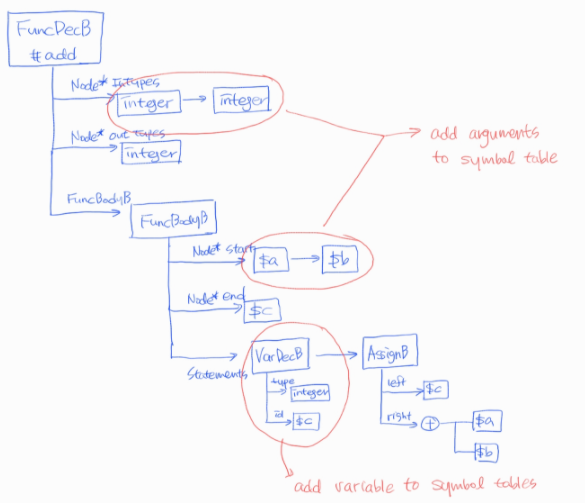 FuncDecB
#add
Node* Intypes
integer
integer
Node* out types
integer
add arguments
to symbol table
FuncBodyB
FuncBodyB
Node* start
$a
$b
Node* end
$c
Statements
VarDecB
AssignB
type
integer
id
$c
left
$c
right
+
$a
$b
add variable to symbol tables